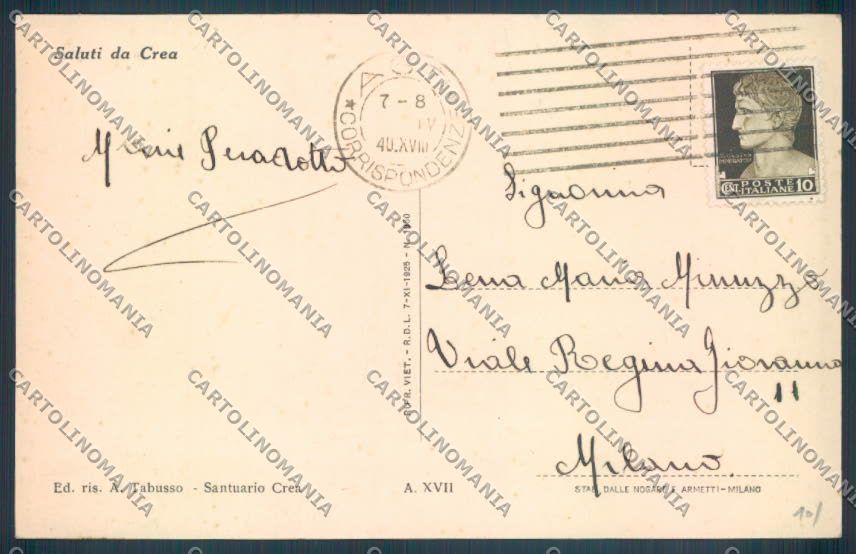 Saluti da Crea
7 - 8
IV
40.XVIII
★ CORRISPONDENZE
CENT. POSTE ITALIANE 10
Signorina
Lena Maria Minuzzo
Viale Regina Giovanna
11
Milano
RIPR. VIET. - R.D.L. 7-XI-1925 - N.
Ed. ris. A. Tabusso - Santuario Crea
A. XVII
STAB. DALLE NOGARE E ARMETTI - MILANO
10/
CARTOLINOMANIA